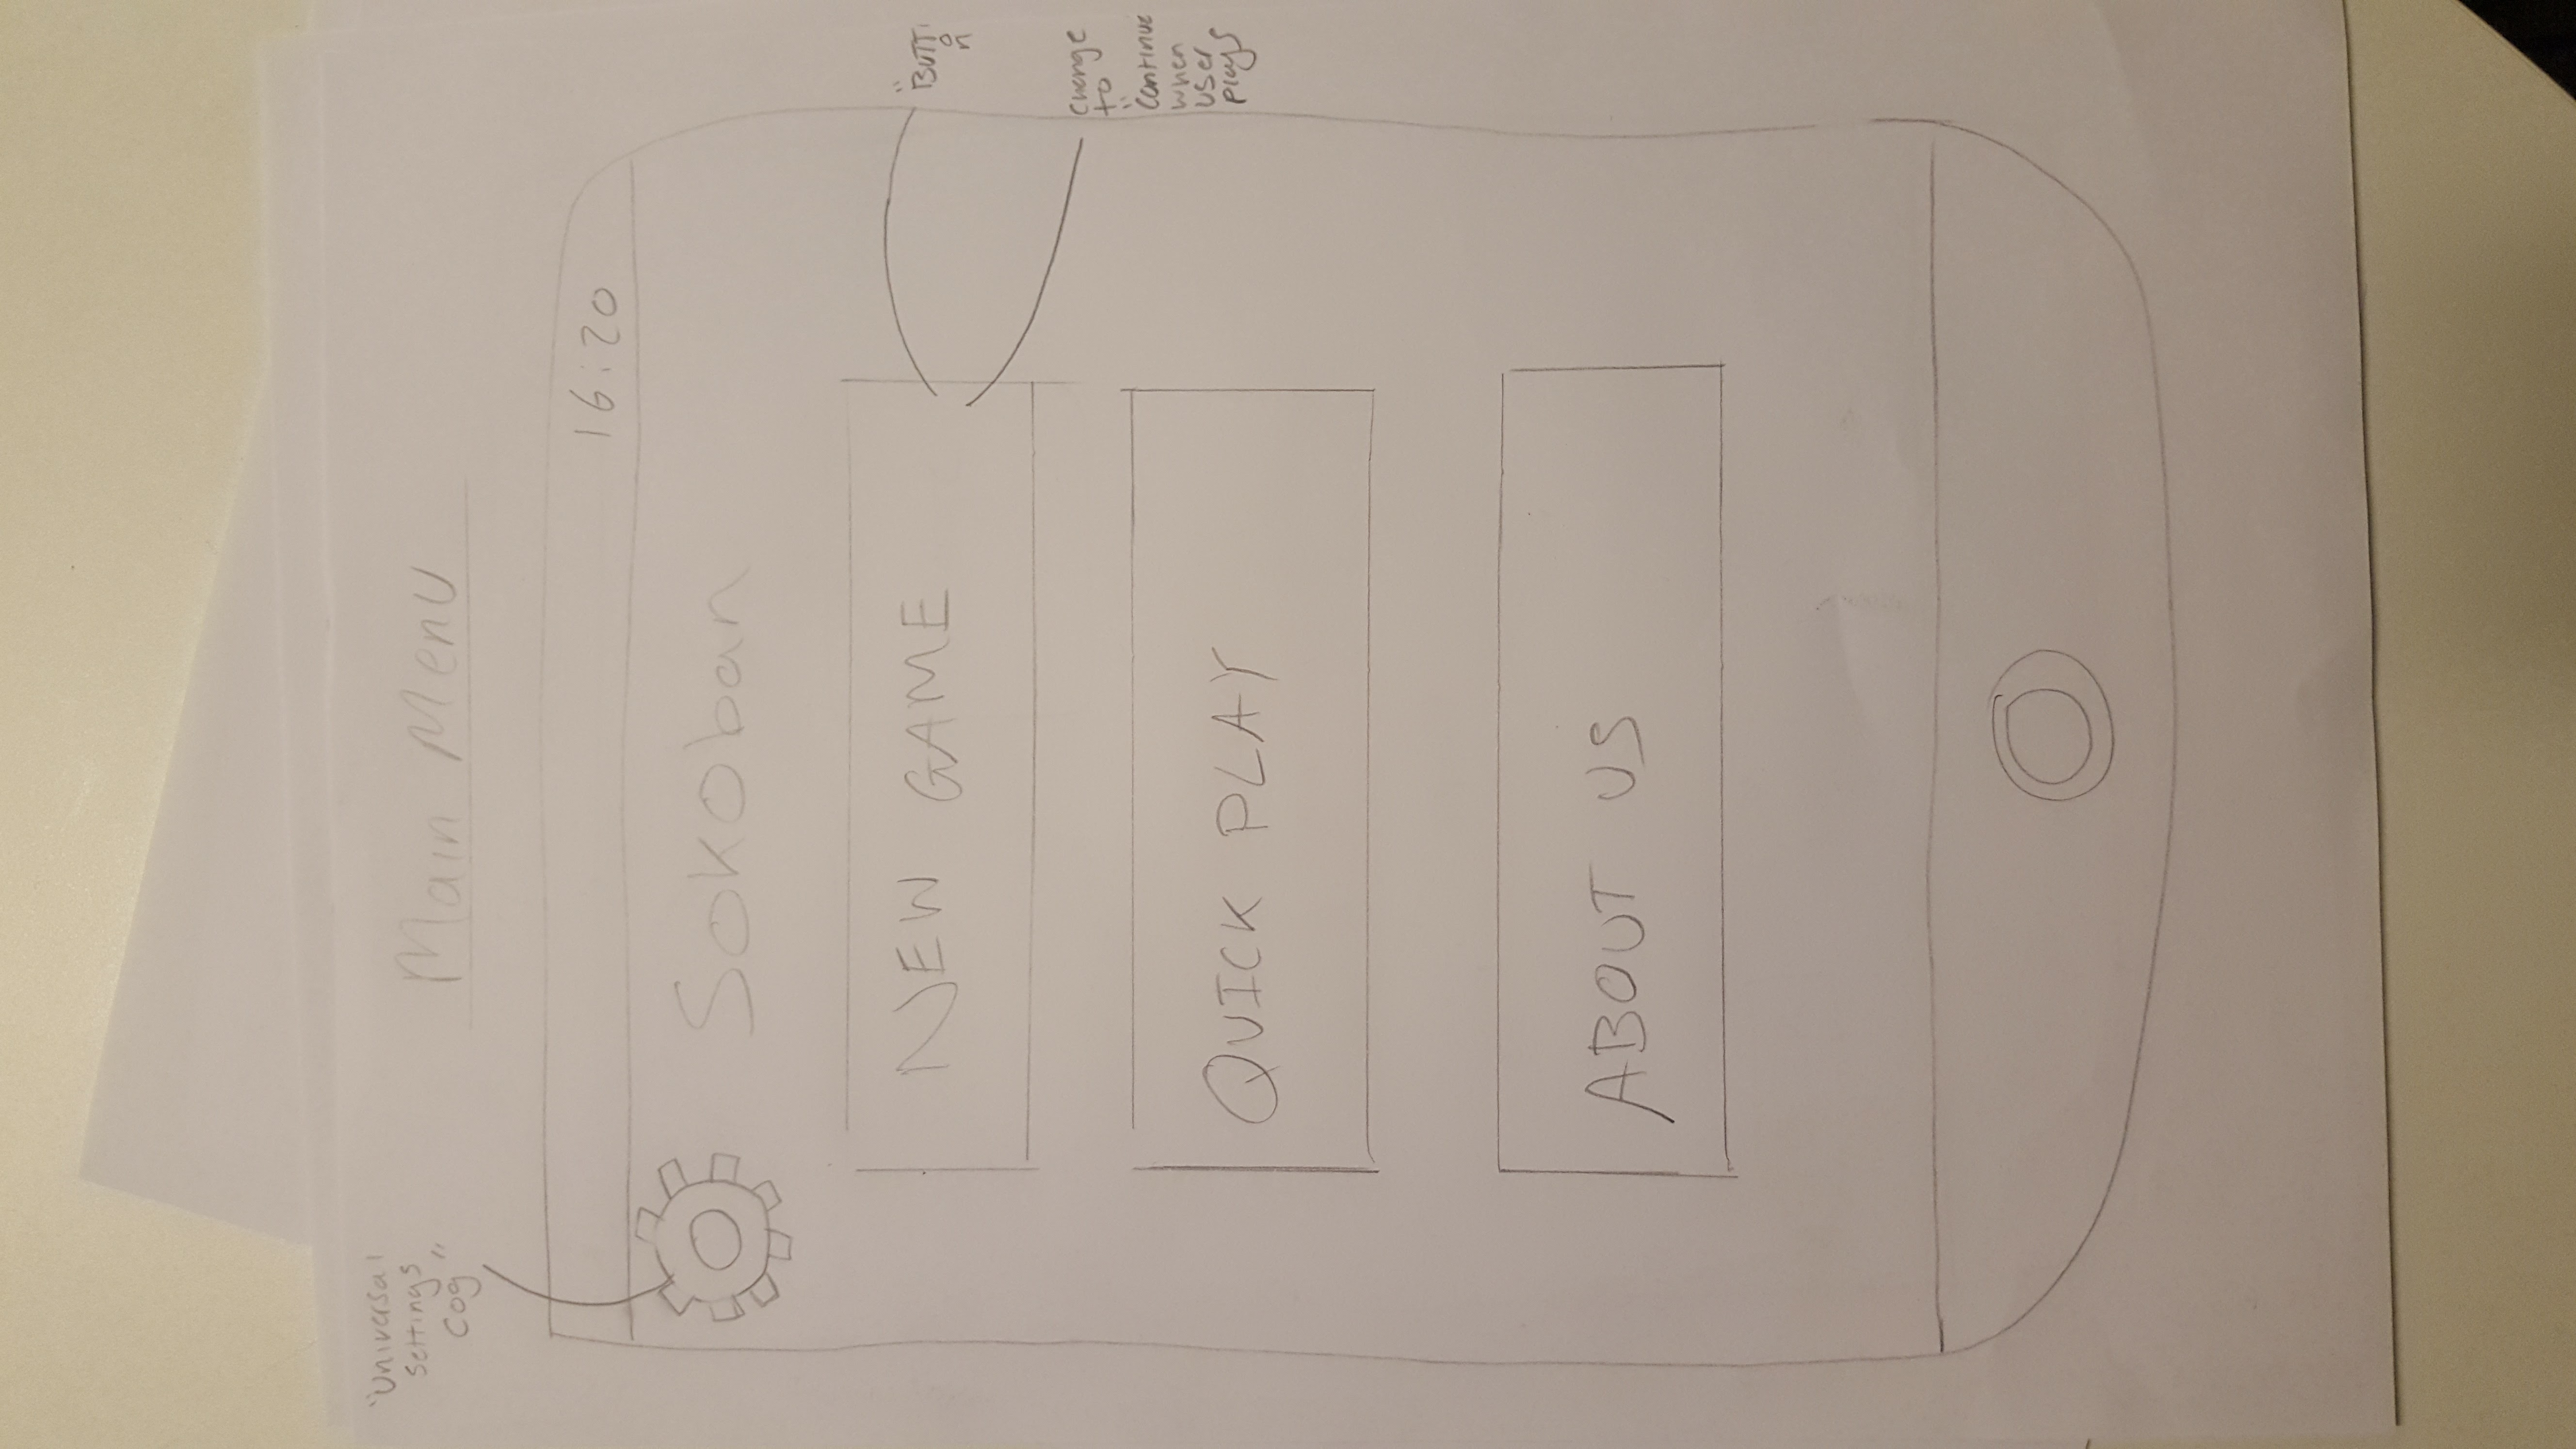 "Universal
Settings
Cog"
Main Menu
16:20
Sokoban
NEW GAME
"BUTT
o
n
Change
to
"Continue
when
user
plays
QUICK PLAY
ABOUT US